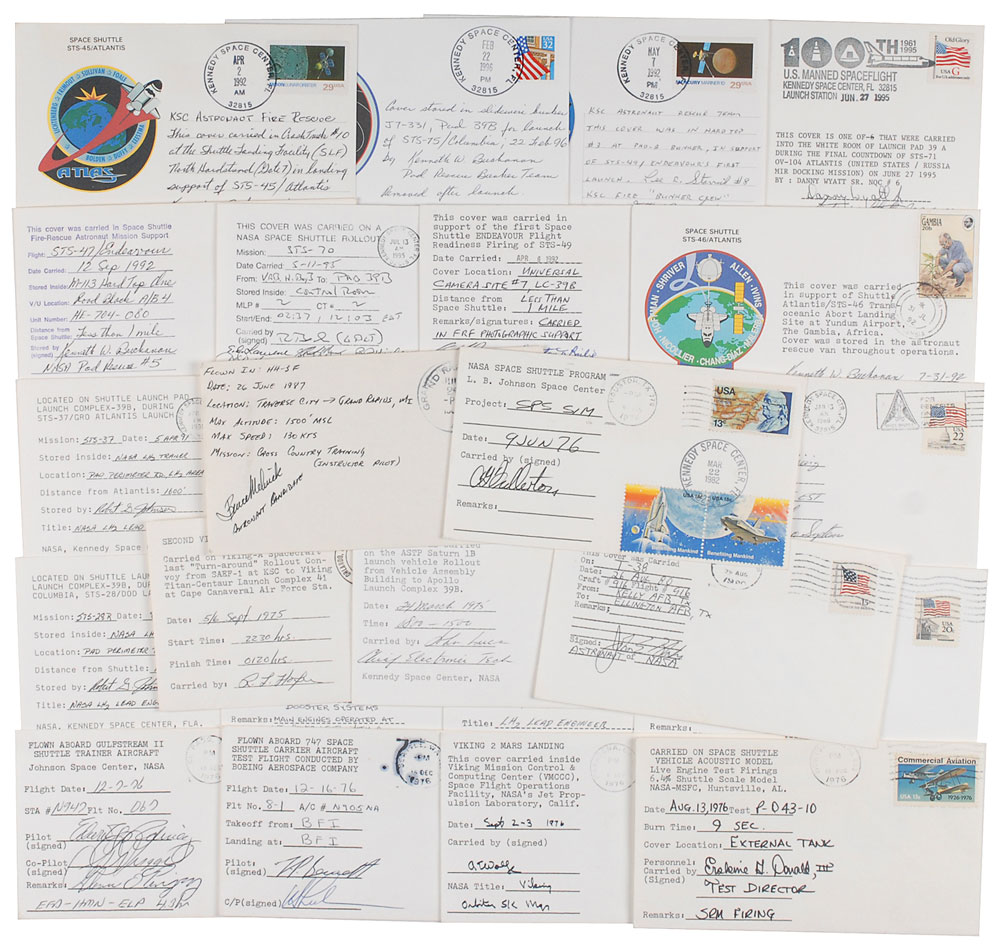 SPACE SHUTTLE
STS-45/ATLANTIS
FOALE
SULLIVAN
BOLDEN
ATLAS
KENNEDY SPACE CENTER, FL
APR
2
1992
AM
32815
29USA
KSC ASTRONAUT FIRE RESCUE
This cover carried in Crash Truck #10
at the Shuttle Landing Facility (SLF)
North Hardstand (Gate 7) in Landing
support of STS-45/Atlantis
KENNEDY SPACE CENTER, FL
FEB
22
1996
PM
32815
USA
32
Cover stored in slidewire bunker
J7-331, Pad 39B for launch
of STS-75/Columbia, 22 Feb 96
by Kenneth W. Buchanan
Pad Rescue Bunker Team
Removed after launch.
KENNEDY SPACE CENTER, FL
MAY
7
1992
PM
32815
29USA
KSC ASTRONAUT RESCUE TEAM
THIS COVER WAS IN HARD TOP
#3 AT PAD B BUNKER, IN SUPPORT
OF STS-49/ENDEAVOUR'S FIRST
LAUNCH.
KSC FIRE "BUNKER CREW"
100TH 1961 1995
U.S. MANNED SPACEFLIGHT
KENNEDY SPACE CENTER, FL 32815
LAUNCH STATION JUN. 27 1995
Old Glory
USA G
THIS COVER IS ONE OF 6 THAT WERE CARRIED
INTO THE WHITE ROOM OF LAUNCH PAD 39 A
DURING THE FINAL COUNTDOWN OF STS-71
OV-104 ATLANTIS (UNITED STATES / RUSSIA
MIR DOCKING MISSION) ON JUNE 27 1995
BY : DANNY WYATT SR. NQC # 6
Danny Wyatt Sr.
This cover was carried in Space Shuttle
Fire-Rescue Astronaut Mission Support
Flight: STS-47/Endeavour
Date Carried: 12 Sep 1992
Stored Inside: M-113 Hard Top One
V/U Location: Road Block A/B 4
Unit Number: HE-704-060
Distance from
Shuttle: Less than 1 mile
Stored by
(signed) Kenneth W. Buchanan
NASA Pad Rescue #5
THIS COVER WAS CARRIED ON A
NASA SPACE SHUTTLE ROLLOUT
Mission: STS-70
Date Carried: 5-11-95
From: VAB H.B. 3 To PAD 39B
Stored Inside: Control Room
MLP # 2 CT # 2
Start/End: 0237 / 1203 EDT
Carried by
(signed)
This cover was carried in
support of the first Space
Shuttle ENDEAVOUR Flight
Readiness Firing of STS-49
Date Carried: APR 6 1992
Cover Location: UNIVERSAL
CAMERA SITE #7, LC-39B
Distance from LESS THAN
Space Shuttle: 1 MILE
Remarks/signatures: CARRIED
IN FRF PHOTOGRAPHIC SUPPORT
SPACE SHUTTLE
STS-46/ATLANTIS
SHRIVER
ALLEN
IVINS
CHANG-DIAZ
GAMBIA
20b
This cover was carried
in support of Shuttle
Atlantis/STS-46 Trans
oceanic Abort Landing
Site at Yundum Airport,
The Gambia, Africa.
Cover was stored in the astronaut
rescue van throughout operations.
Kenneth W. Buchanan 7-31-92
LOCATED ON SHUTTLE LAUNCH PAD
LAUNCH COMPLEX-39B, DURING
STS-37/GRO ATLANTIS LAUNCH
Mission: STS-37 Date: 5 APR 91
Stored inside: NASA LH2 TRAILER
Location: PAD PERIMETER RD, LH2 AREA
Distance from Atlantis: 1600'
Stored by: Robert G. Johnson
Title: NASA LH2 LEAD
NASA, Kennedy Space
FLOWN IN: HH-3F
DATE: 26 JUNE 1987
LOCATION: TRAVERSE CITY → GRAND RAPIDS, MI
MAX ALTITUDE: 1500' MSL
MAX SPEED: 130 KTS
MISSION: CROSS COUNTRY TRAINING
(INSTRUCTOR PILOT)
ASTRONAUT CANDIDATE
NASA SPACE SHUTTLE PROGRAM
L. B. Johnson Space Center
Project: SPS SIM
Date: 9 JUN 76
Carried by (signed)
Remarks:
USA
13c
KENNEDY SPACE CENTER, FL
MAR
22
1982
USA 18c
Benefiting Mankind
Benefiting Mankind
USA 22
LOCATED ON SHUTTLE LAUNCH
LAUNCH COMPLEX-39B, DURING
COLUMBIA, STS-28/DOD LAUNCH
Mission: STS-28R Date:
Stored inside: NASA LH2
Location: PAD PERIMETER
Distance from Shuttle:
Stored by: Robert G. Johnson
Title: NASA LH2 LEAD ENG
NASA, KENNEDY SPACE CENTER, FLA.
SECOND VI
Carried on Viking-A Spacecraft
last "Turn-around" Rollout Con-
voy from SAEF-1 at KSC to Viking
Titan-Centaur Launch Complex 41
at Cape Canaveral Air Force Sta.
Date: 5/6 Sept 1975
Start Time: 2230 hrs
Finish Time: 0120 hrs
Carried by:
carried
on the ASTP Saturn 1B
launch vehicle Rollout
from Vehicle Assembly
Building to Apollo
Launch Complex 39B.
Date: 24 March 1975
Time: 0700 - 1500
Carried by:
Chief Electronic Tech
Kennedy Space Center, NASA
This Cover was Carried
On: T-38
Date: 26 AUG 80
Craft # 916 Flight # 916
From: KELLY AFB TX
To: ELLINGTON AFB, Tx
Remarks:
Signed:
ASTRONAUT at NASA
USA 20c
BOOSTER SYSTEMS
Remarks: MAIN ENGINES OPERATED AT
Title: LH2 LEAD ENGINEER
Remarks:
FLOWN ABOARD GULFSTREAM II
SHUTTLE TRAINER AIRCRAFT
Johnson Space Center, NASA
Flight Date: 12-7-76
STA # N947 Flt No. 067
Pilot
(signed)
Co-Pilot
(signed)
Remarks:
EFD-IHMN-ELP 4.3 hr
FLOWN ABOARD 747 SPACE
SHUTTLE CARRIER AIRCRAFT
TEST FLIGHT CONDUCTED BY
BOEING AEROSPACE COMPANY
Flight Date: 12-16-76
Flt No. 8-1 A/C # N905NA
Takeoff from: BFI
Landing at: BFI
Pilot:
C/P(signed)
DEC
1976
VIKING 2 MARS LANDING
This cover carried inside
Viking Mission Control &
Computing Center (VMCCC),
Space Flight Operations
Facility, NASA's Jet Pro-
pulsion Laboratory, Calif.
Date: Sept 2-3 1976
Carried by (signed)
NASA Title: Viking
Orbiter S/C Mgr
CARRIED ON SPACE SHUTTLE
VEHICLE ACOUSTIC MODEL
Live Engine Test Firings
6.4% Shuttle Scale Model
NASA-MSFC, Huntsville, AL.
Date AUG.13,1976 Test P-D43-10
Burn Time: 9 SEC.
Cover Location: EXTERNAL TANK
Personnel:
Carried by Erskine G. Donald, III
(Signed) TEST DIRECTOR
Remarks: SRM FIRING
Commercial Aviation
1926-1976
USA 13c